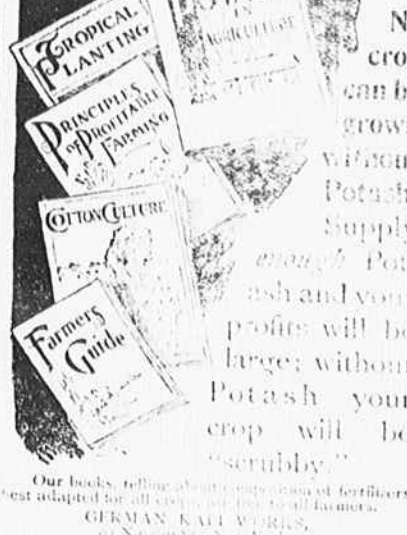 TROPICAL
PLANTING
IN
AGRICULTURE
PRINCIPLES
OF PROFITABLE
FARMING
COTTON CULTURE
Farmers
Guide
N
cro
can b
grow
withou
Potash
Supply
enough Pot
ash and your
profits will be
large; without
Potash your
crop will be
"scrubby."
Our books, telling about composition of fertilizers
best adapted for all crops, are free to all farmers.
GERMAN KALI WORKS,